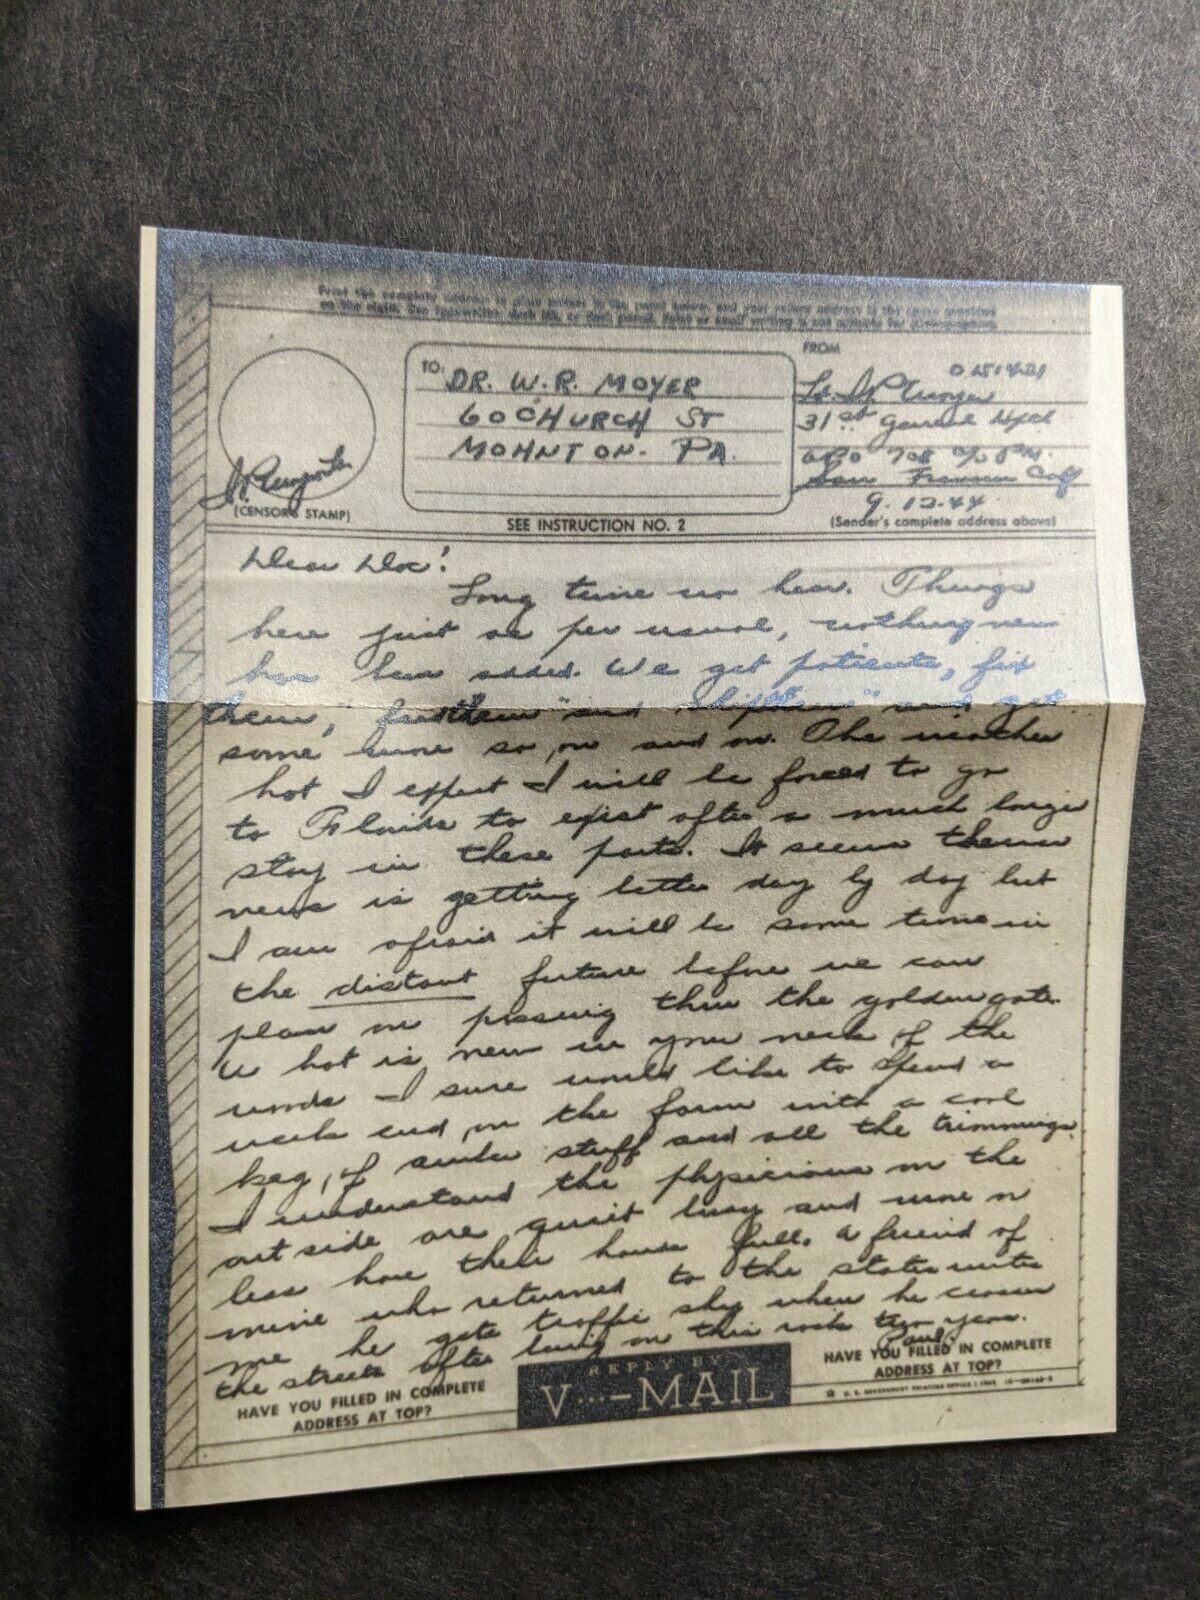 Print the complete address in plain letters in the panel below, and your return address in the space provided
on the right. Use typewriter, dark ink, or dark pencil. Faint or small writing is not suitable for photographing.
FROM
TO:
DR. W. R. MOYER
60 CHURCH ST
MOHNTON - PA.
Lt
31st General Hospl
APO 708 c/o P.M.
San Francisco Calif
9.12.44
(CENSOR'S STAMP)
SEE INSTRUCTION NO. 2
(Sender's complete address above)
Dear Doc!
Long time no hear. Things
here just as per usual, nothing new
has been added. We get patients, fix
them, "feed them" and "ship them" and get
some more so on and on. The weather
hot I expect I will be forced to go
to Florida to exist after a much longer
stay in these parts. It seems the war
news is getting better day by day but
I am afraid it will be some time in
the distant future before we can
plan on passing thru the golden gate.
What is new in your neck of the
woods - I sure would like to spend a
week end on the farm with a cool
keg of amber stuff and all the trimmings.
I understand the physicians on the
out side are quiet busy and more or
less have their hands full. A friend of
mine who returned to the states writes
me he gets traffic shy when he crosses
the streets after being on this rock two years.
Paul.
HAVE YOU FILLED IN COMPLETE
ADDRESS AT TOP?
REPLY BY
V···—MAIL
HAVE YOU FILLED IN COMPLETE
ADDRESS AT TOP?
☆ U. S. GOVERNMENT PRINTING OFFICE